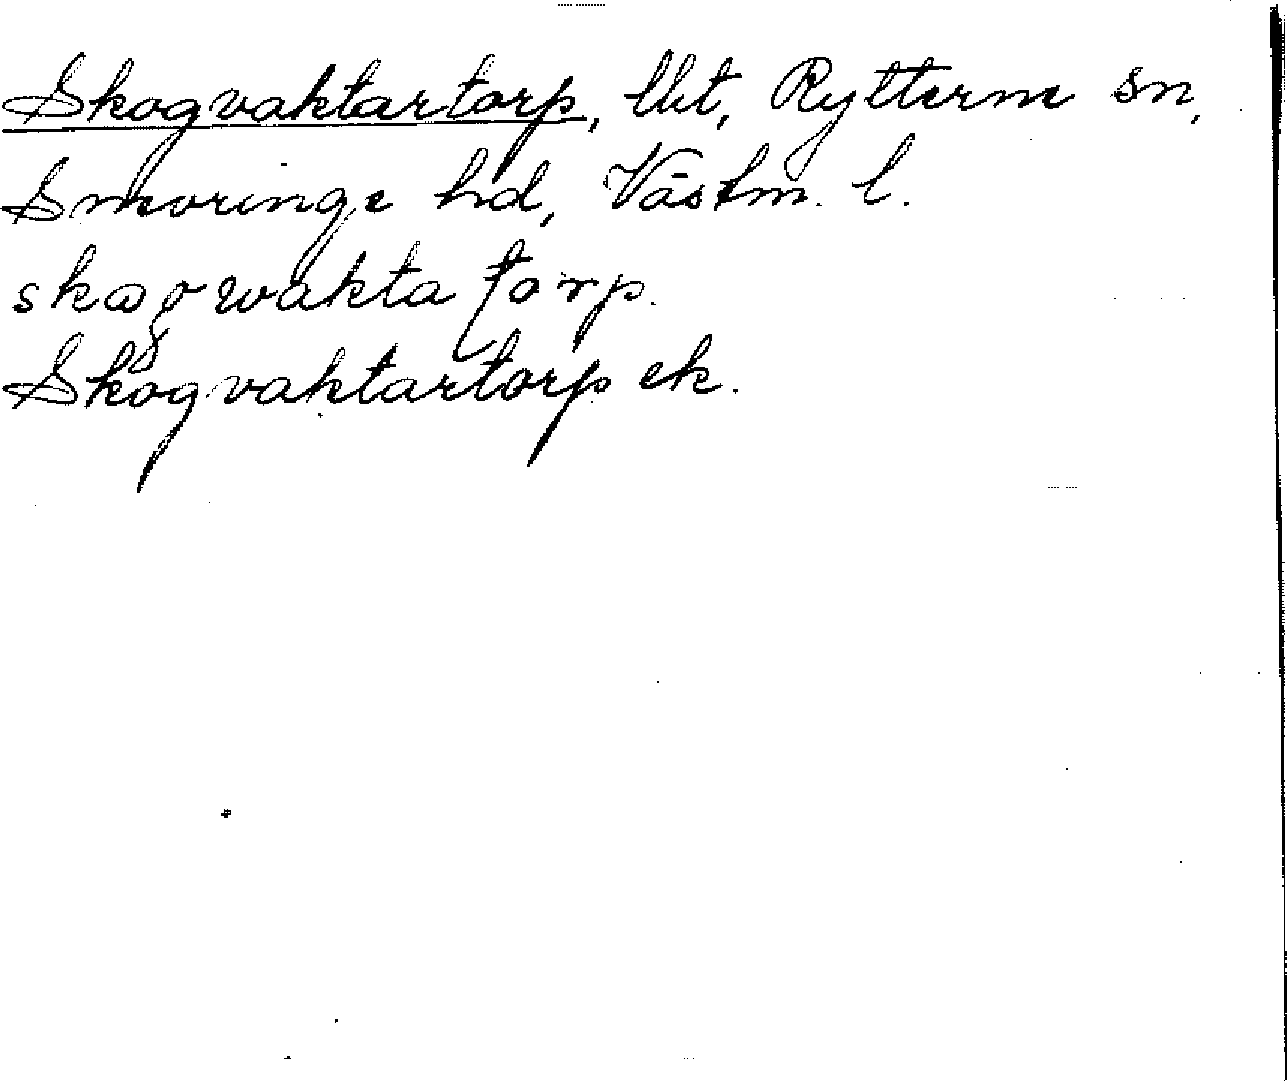 Skogvaktartorp, lht, Rytterne sn,
Snevringe hd, Västm. l.
skogvaktatorp.
Skogvaktartorp ek.